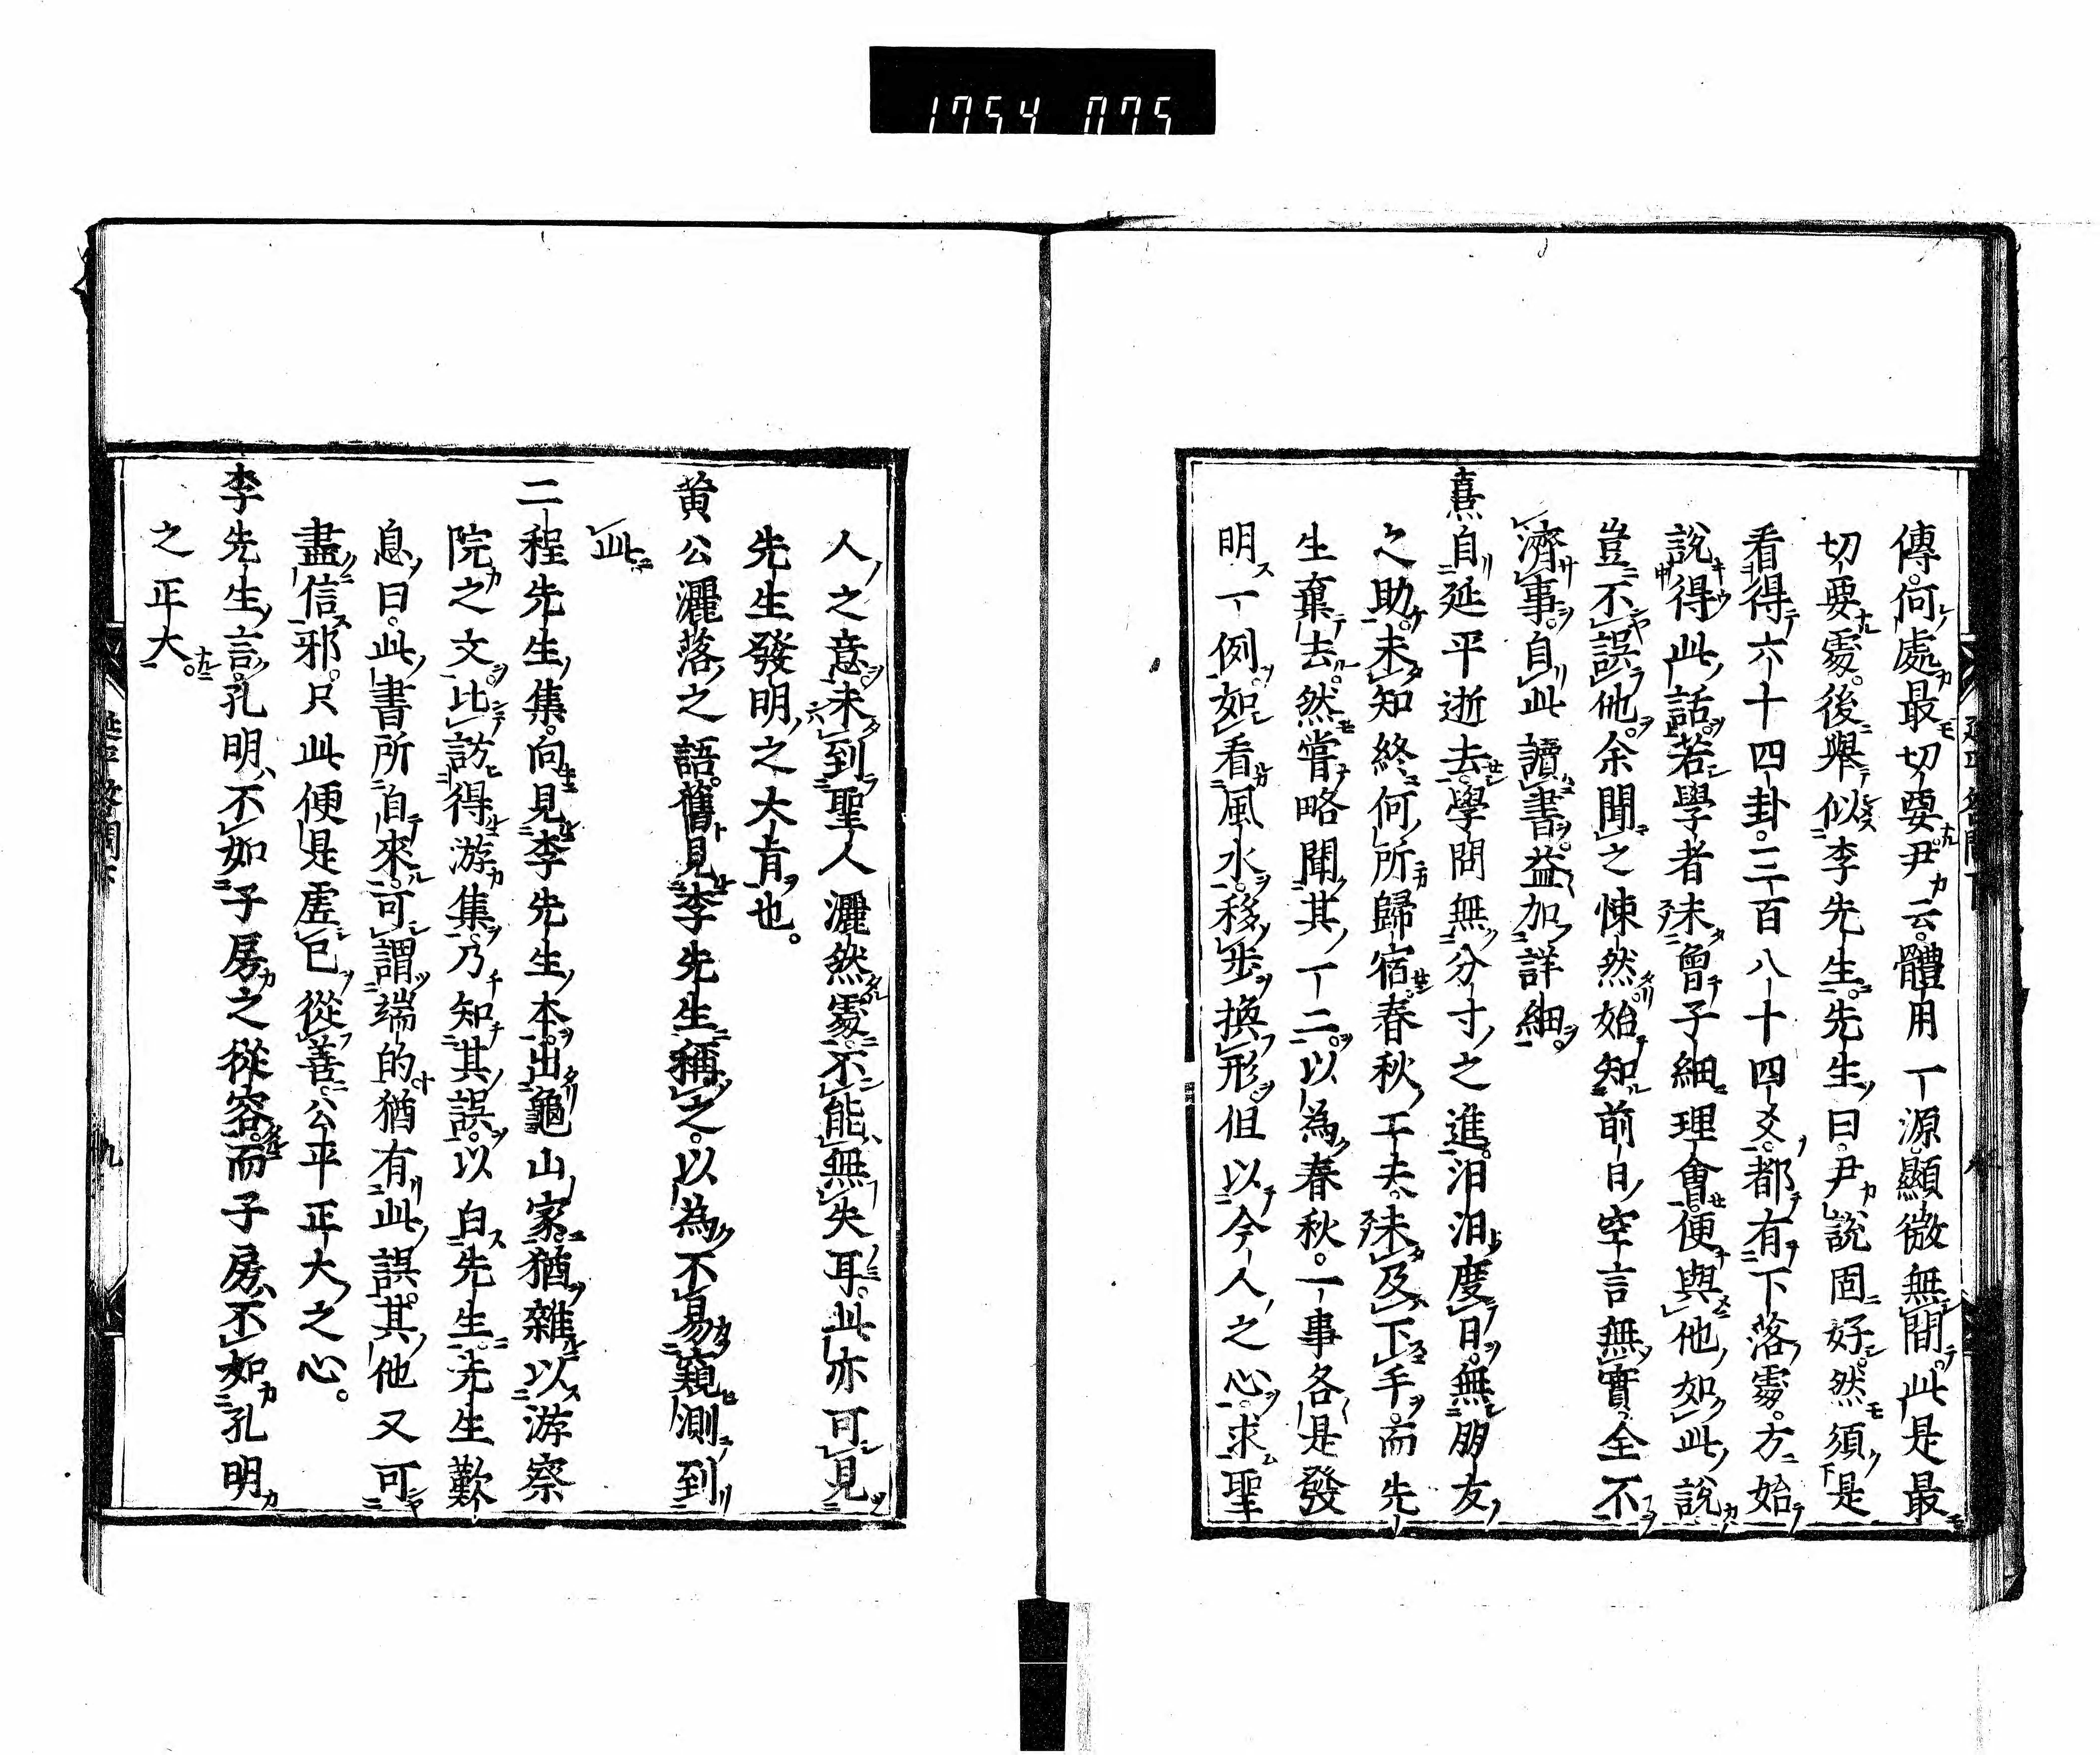 1754 075
傳何處最切要尹云體用一源顯微無間此是最
切要處後舉似李先生先生曰尹說固好然須是
看得六十四卦三百八十四爻都有下落處方始
說得此話若學者未曾子細理會便與他如此說
豈不誤他余聞之悚然始知前日空言無實全不
濟事自此讀書益加詳細
熹自延平逝去學問無分寸之進汨汨度日無朋友
之助未知終何所歸宿春秋工夫未及下手而先
生棄去然嘗略聞其一二以為春秋一事各是發
明一例如看風水移步換形但以今人之心求聖
人之意未到聖人灑然處不能無失耳此亦可見
先生發明之大旨也
黄公灑落之語舊見李先生稱之以為不易窺測到
此
二程先生集向見李先生本出龜山家猶雜以游察
院之文比訪得游集乃知其誤以白先生先生歎
息曰此書所自來可謂端的猶有此誤其他又可
盡信邪只此便是虛己從善公平正大之心
李先生言孔明不如子房之從容而子房不如孔明
之正大
延平答問下
九